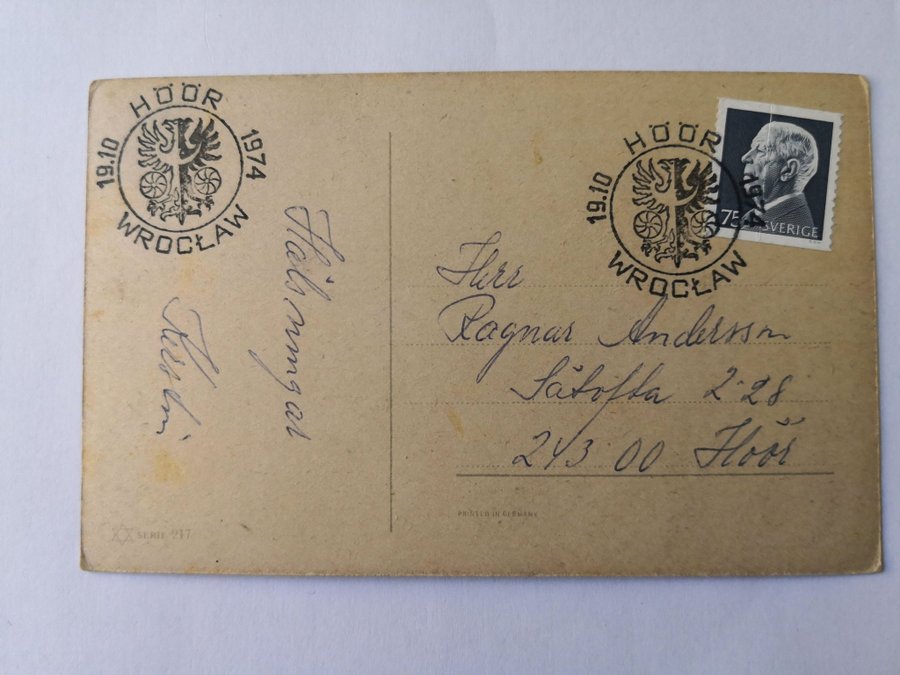 HÖÖR
19.10 1974
WROCŁAW
HÖÖR
19.10 1974
WROCŁAW
75 SVERIGE
Hälsningar
Kerstin
Herr
Ragnar Andersson
Sätofta 2228
243 00 Höör
PRINTED IN GERMANY
SERIE 217